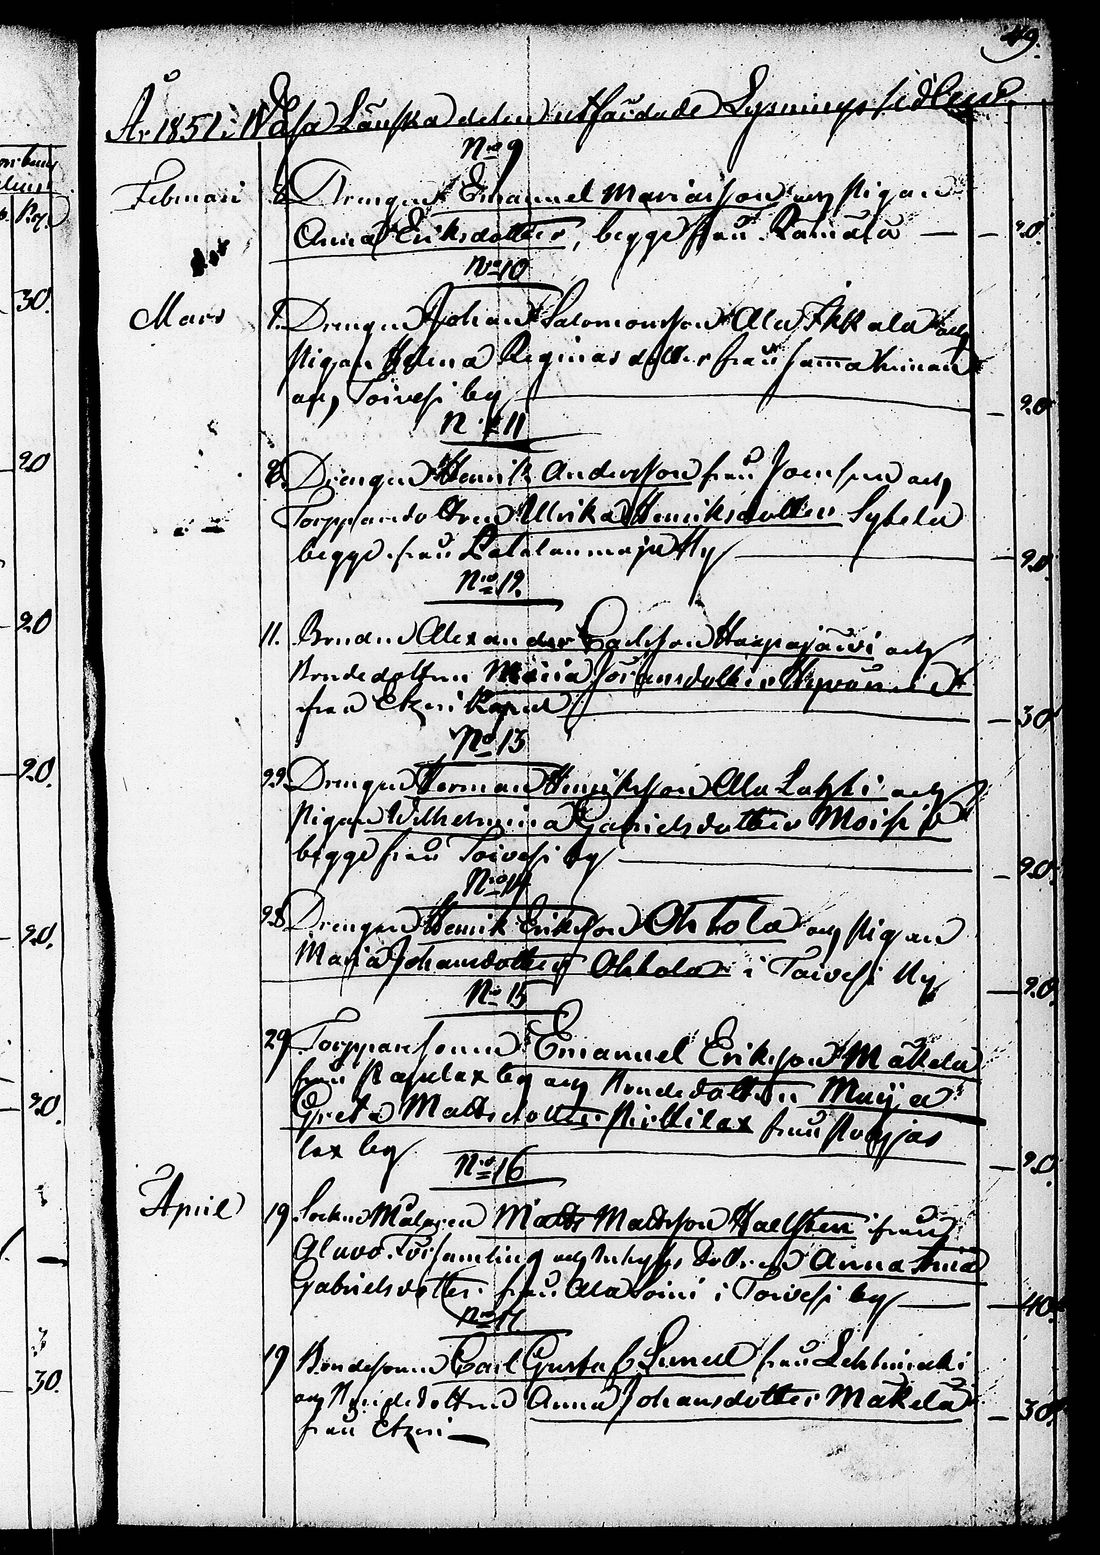 30.
20
20
20.
20.
30.
3
30.
49.
År 1851. i Wasa Länska delen utfärdade Lysningssedlar
No 9
Februari 8. Drengen Emanuel Mariasson och Pigan
Anna Eriksdotter, begge från Rannala — 20.
No 10
Mars 1. Drengen Johan Salomonsson Ala Ikkala och
Pigan Helena Reginasdotter från samma hemman
af Toivesi by — 20
No 11
8. Drengen Henrik Andersson från och
Torppardottren Ulrika Henriksdotter Sybelä
begge från by — 20.
No 12.
11. Bonden Alexander Carlsson Haapajärvi och
Bondedottren Maria Göransdotter
från Etzeri Kapell — 30
No 13
22. Drengen Herman Henriksson Ala Lahti och
Pigan Wilhelmina Gabrielsdotter Moisio
begge från Toivesi by — 20.
No 14
28. Drengen Henrik Eriksson Ohtola och Pigan
Maria Johansdotter Ohtola i Toivesi by — 20.
No 15
29. Torpparesonen Emanuel Eriksson Mäkelä
från by och Bondedottren Maija
Greta Mattsdotter Pirttilax från
lax by — 20.
No 16
April 19. Sockne Målaren Matts Mattsson Hallsten från
Alavo Församling och Inhyses Dottren Anna Stina
Gabrielsdotter från Ala Soini i Toivesi by — 40.
No 17
19 Bondesonen Carl Gustaf Lunell från Lehtimäki
och Bondedottren Anna Johansdotter Mäkelä
från Etzeri — 30.